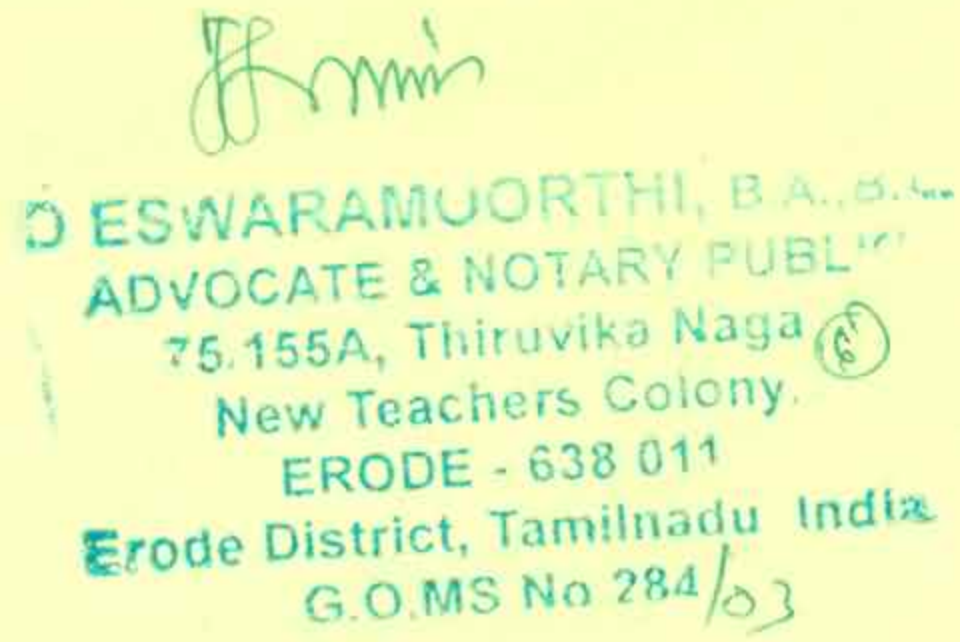 D ESWARAMOORTHI, B.A., B.L.
ADVOCATE & NOTARY PUBLIC
75.155A, Thiruvika Naga
New Teachers Colony.
ERODE - 638 011
Erode District, Tamilnadu India
G.O.MS No 284/03